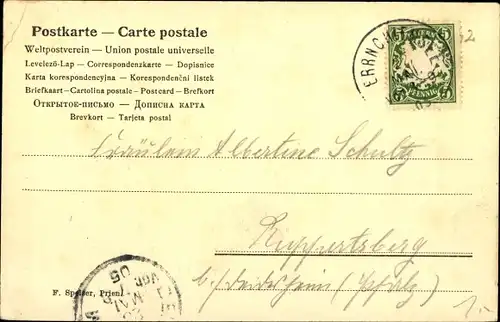 Postkarte — Carte postale
Weltpostverein — Union postale universelle
Levelező-Lap — Correspondenzkarte — Dopisnice
Karta korespondencyjna — Korespondenční listek
Briefkaart — Cartolina postale — Postcard — Brefkort
Открытое-письмо — Дописна карта
Brevkort — Tarjeta postal
5 5
5 PFENNIG 5
Fräulein Albertine Schultz
Ruppertsberg
b/ Deidesheim (Pfalz)
F. Spelzer, Prien
MAI
05